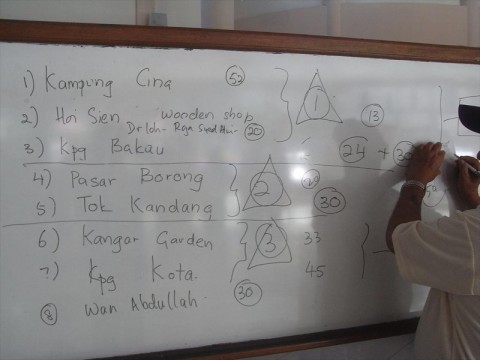 1) Kampung Cina 52
1
2) Hai Sien : wooden shop 13
Dr loh - Raja Syed Alwi - 20
3) Kpg Bakau 24 + 30
4) Pasar Borong
2
5) Tok Kandang 30
6) Kangar Garden 33
3
7) Kpg Kota. 45
8 Wan Abdullah 30